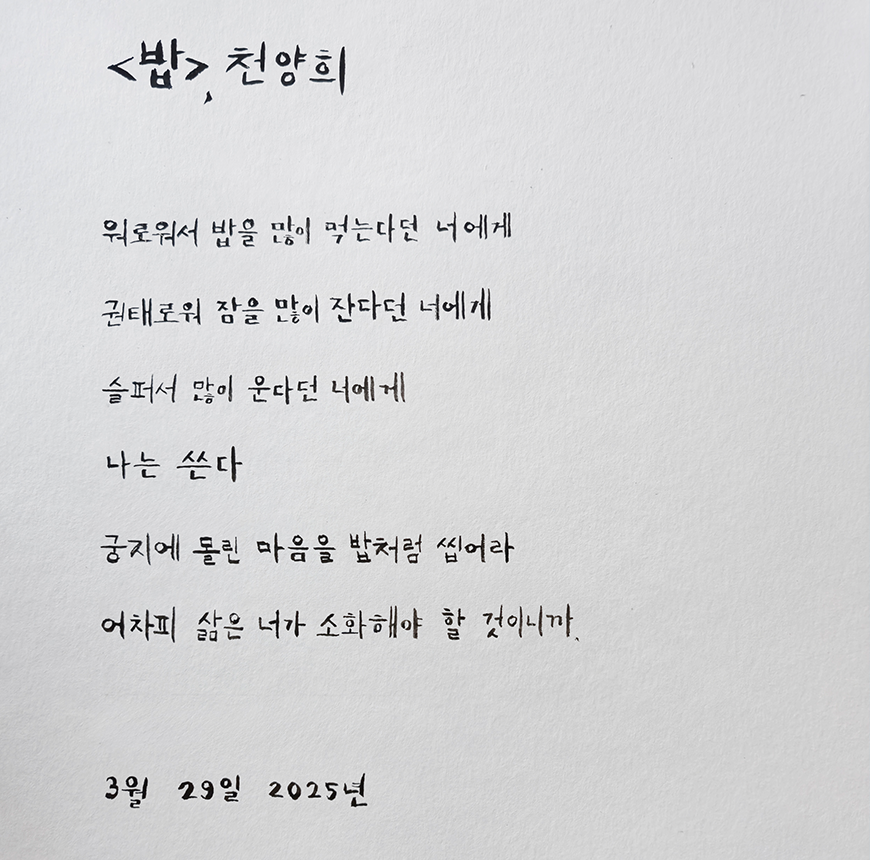 <밥>, 천양희
워로워서 밥을 많이 먹는다던 너에게
권태로워 잠을 많이 잔다던 너에게
슬퍼서 많이 운다던 너에게
나는 쓴다
궁지에 몰린 마음을 밥처럼 씹어라
어차피 삶은 너가 소화해야 할 것이니까.
3월 29일 2025년